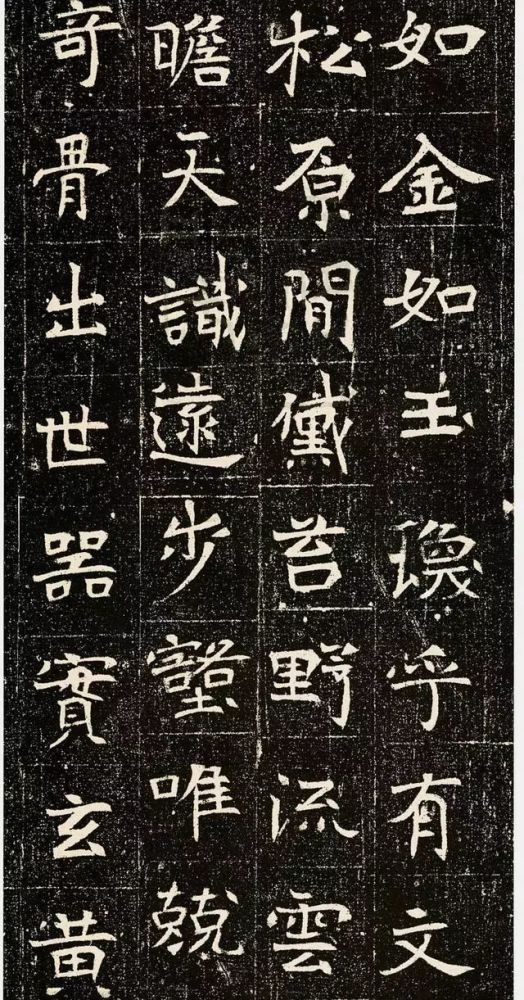 如金如玉瓌乎有文
松原間黛苔野流雲
瞻天識遠步壑唯兢
奇骨出世器實玄黄